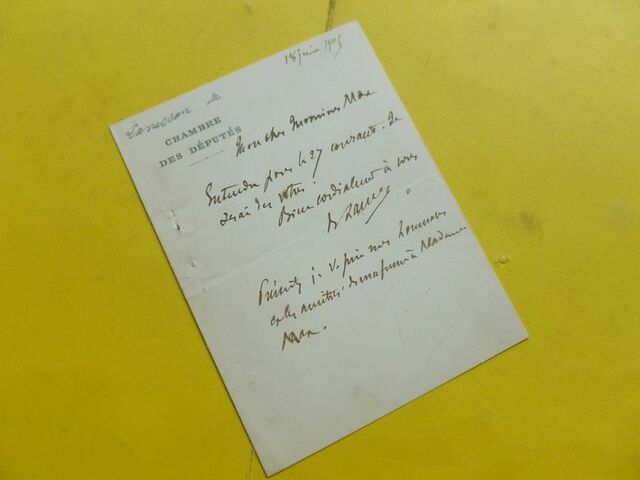 18 juin 1905
Lanessan de
CHAMBRE
DES DÉPUTÉS
Mon cher Monsieur Max
Entendu pour le 27 courant. Je
serai des vôtres.
Bien cordialement à vous
de Lanessan
Présentez je v. prie mes hommages
et les amitiés de ma femme à Madame
Max.